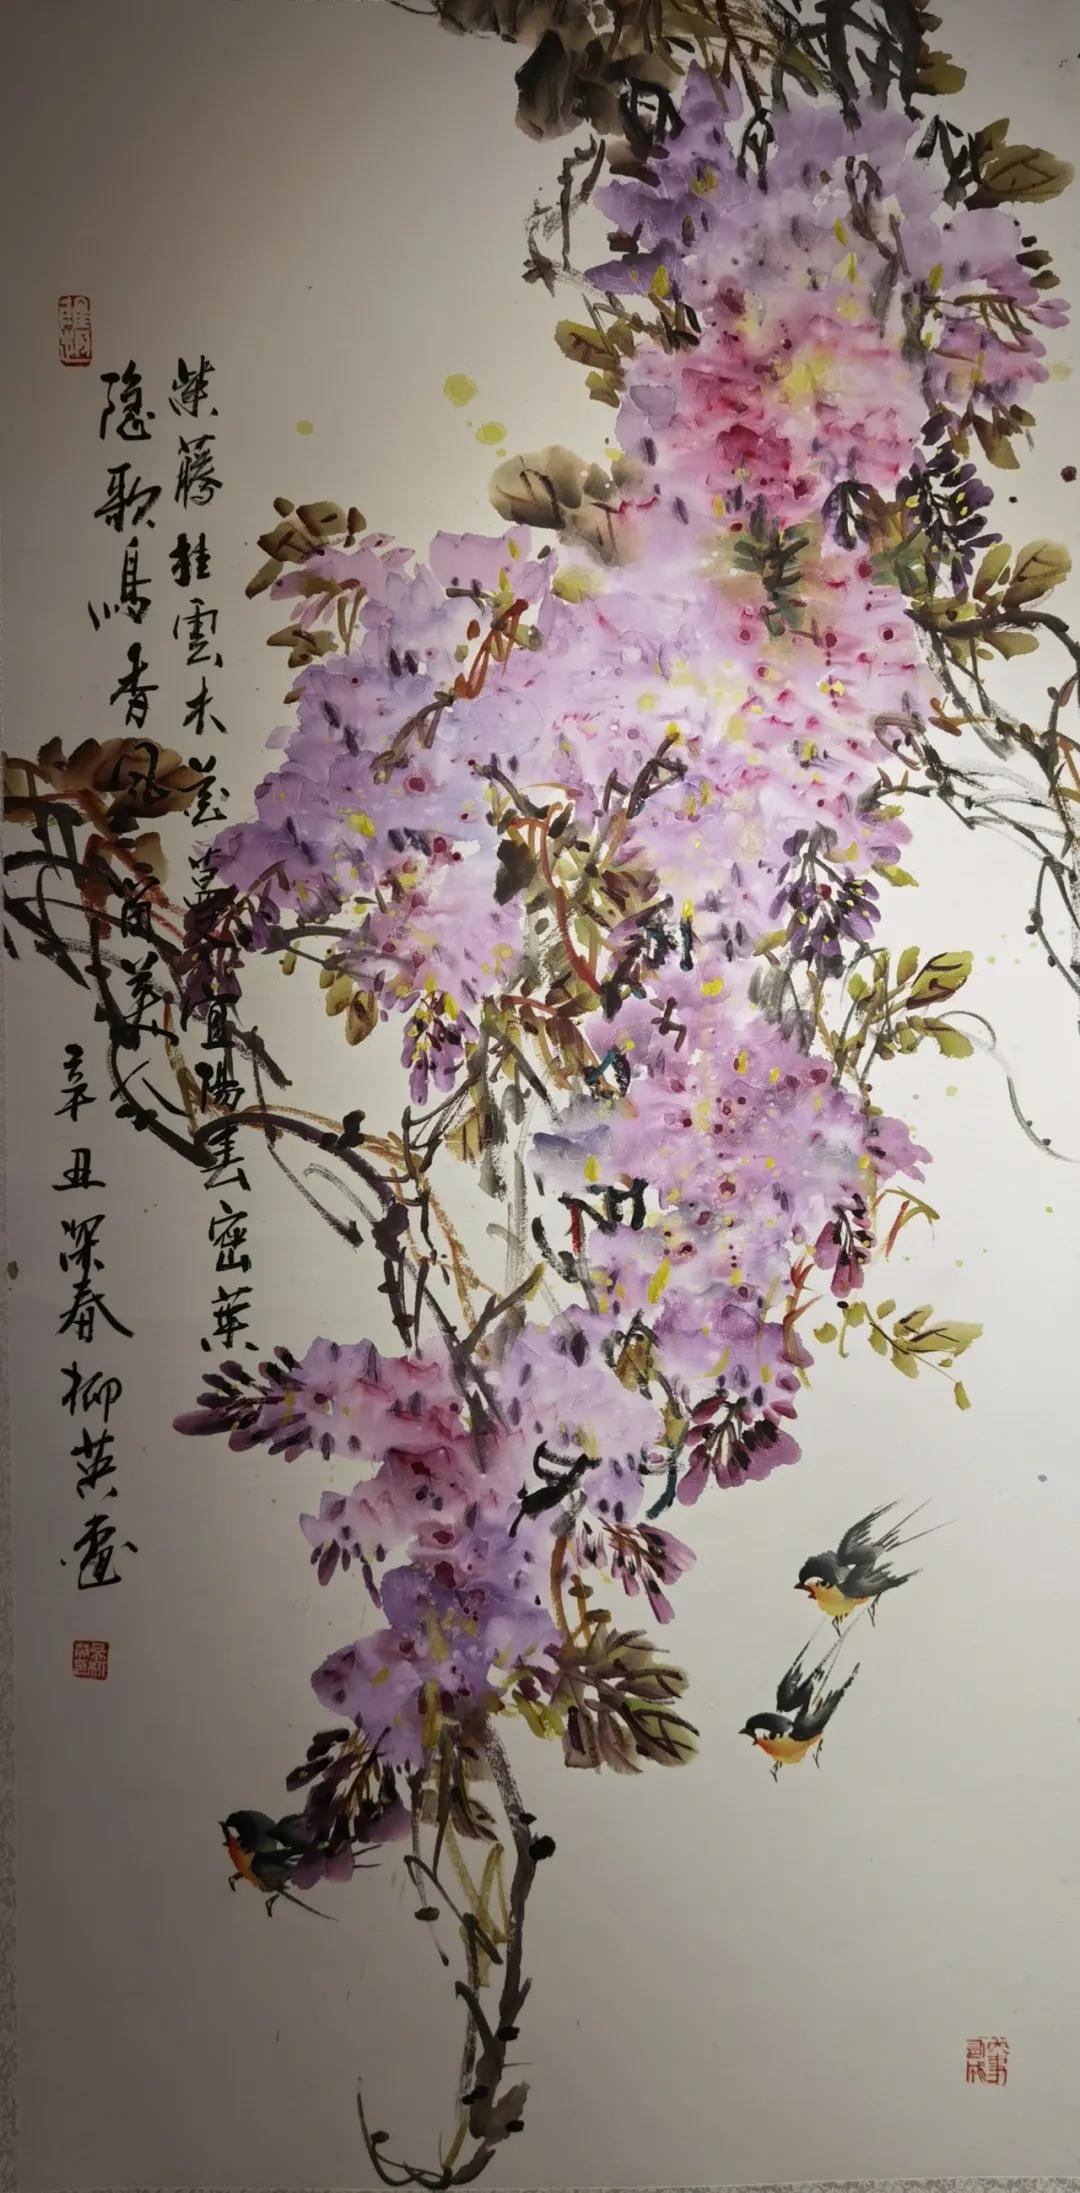 紫藤挂雲木花蔓宜陽春密葉
隱歌鳥香風留美人
辛丑深春柳英畫